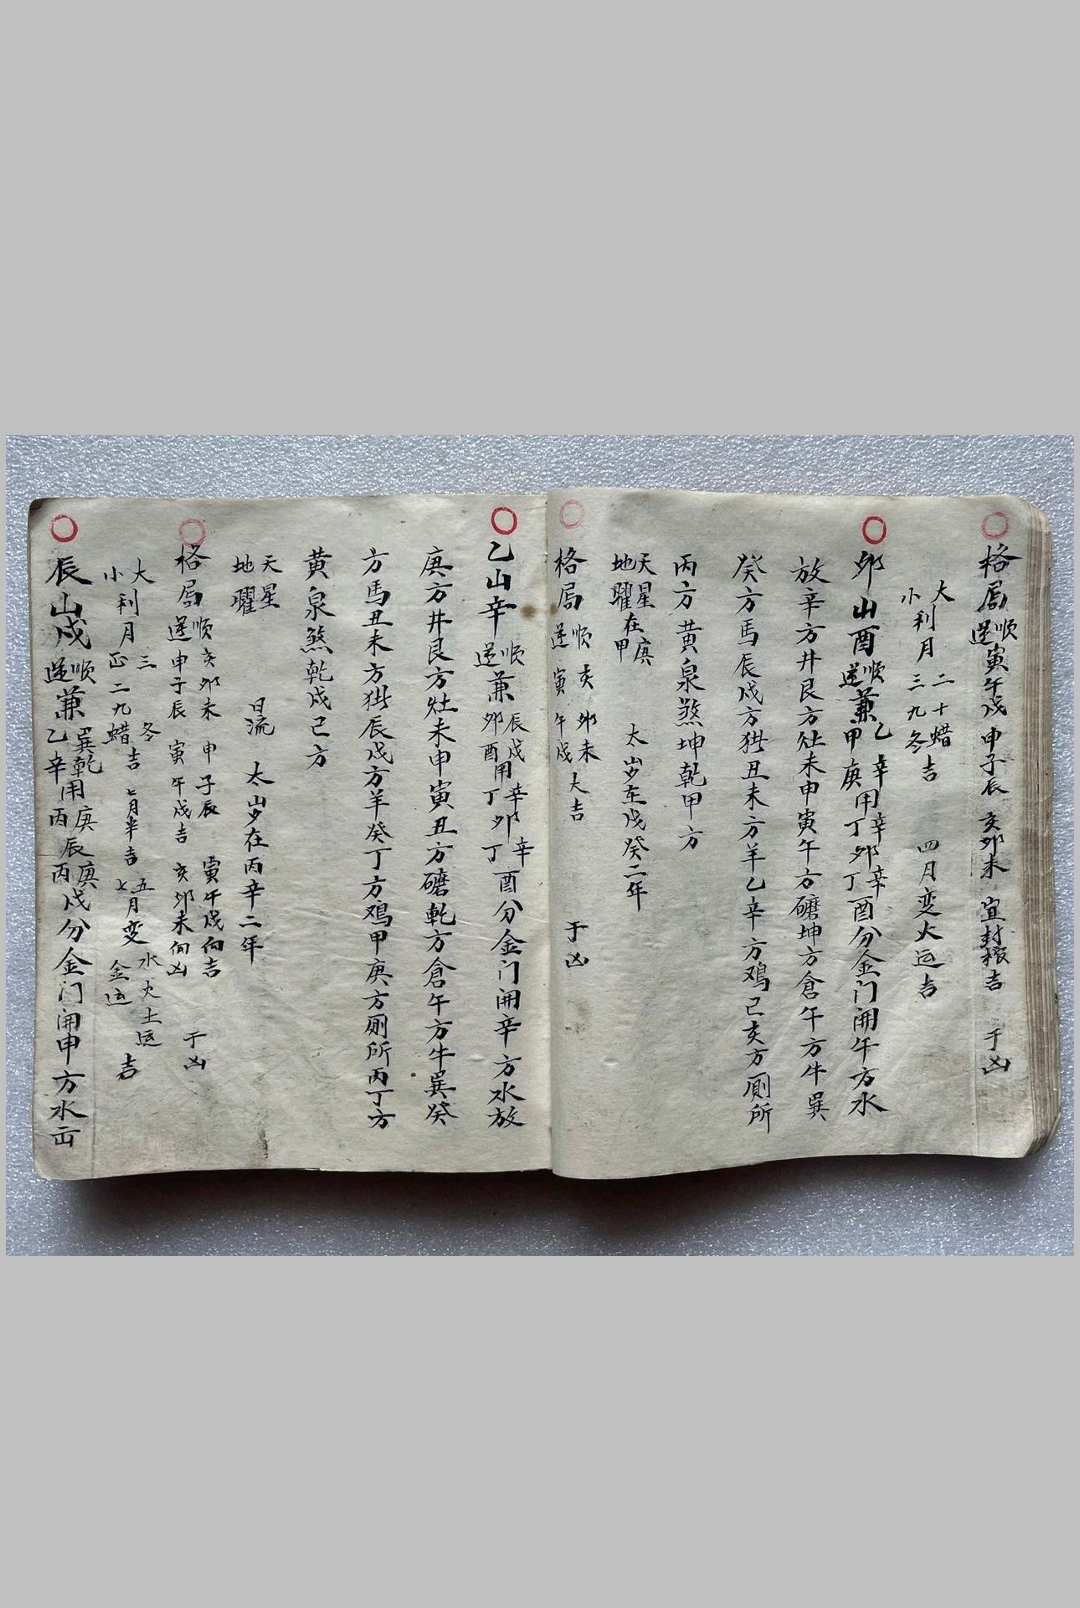 格局 順逆 寅午戌 申子辰 亥卯未 宜封 吉 于凶
大小利月 二十蜡 三九冬 吉 四月变火运吉
卯山酉 順逆 兼 乙辛 甲庚 用 辛卯 丁卯 辛酉 丁酉 分金门開午方水
放辛方井艮方灶未申寅午方磨坤方倉午方牛巽
癸方馬辰戌方猪丑未方羊乙辛方鸡己亥方厠所
丙方黄泉煞坤乾甲方
天星 地曜 在 庚 甲 太岁在戌癸二年 于凶
格局 順逆 亥卯未 寅午戌 大吉
乙山辛 順逆 兼 辰戌 卯酉 用 辛卯 丁卯 辛酉 丁酉 分金门開辛方水放
庚方井艮方灶未申寅丑方磨乾方倉午方牛巽癸
方馬丑未方猪辰戌方羊癸丁方鸡甲庚方厠所丙丁方
黄泉煞乾戌己方
天星 地曜 日流 太岁在丙辛二年
格局 順逆 亥卯未 申子辰 申子辰 寅午戌吉 寅午戌向吉 亥卯未向凶 于凶
大小利月 三冬 正二九蜡 吉 七月半吉 五七月变 水火土运 金运 吉
辰山戌 順逆 兼 巽乾 乙辛 用 庚辰 丙辰 庚戌 丙戌 分金门開申方水